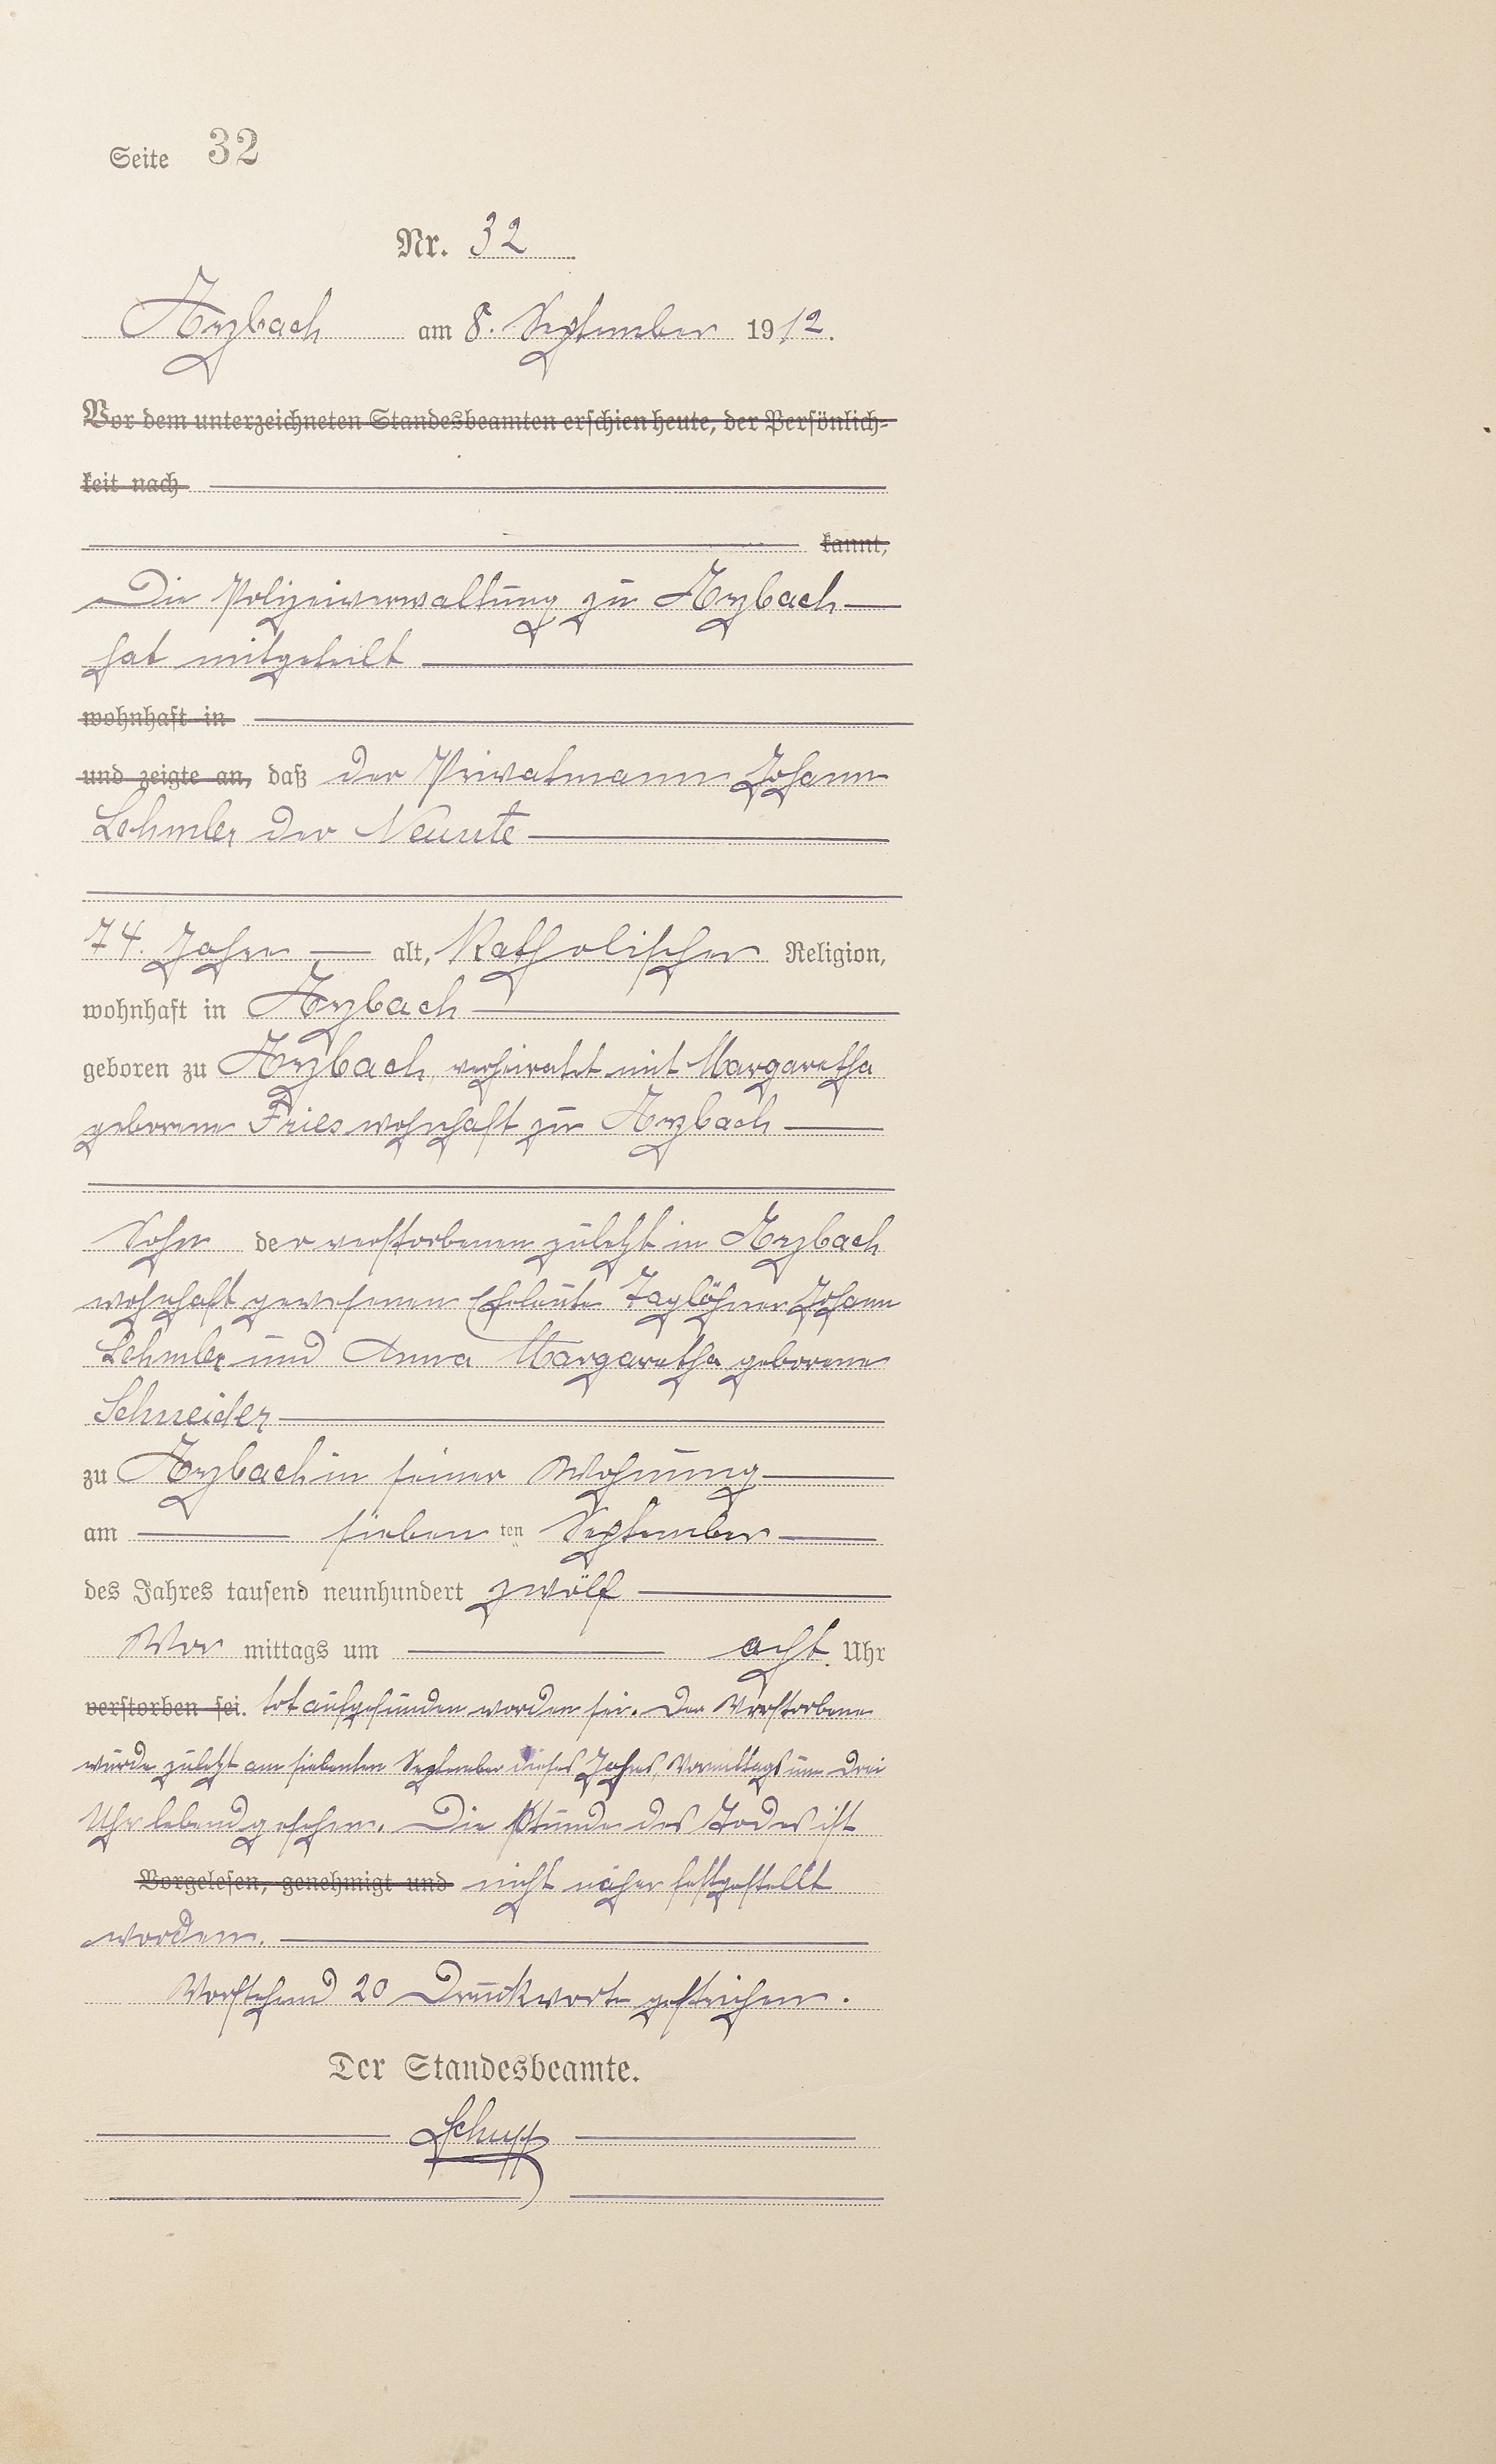 Seite 32
Nr. 32
Arzbach am 8. September 1912.
Vor dem unterzeichneten Standesbeamten erschien heute, der Persönlich-
keit nach
kannt,
Die Polizeiverwaltung zu Arzbach
hat mitgeteilt
wohnhaft in
und zeigte an, daß der Privatmann Johann
Lehmler der Neunte
74. Jahre alt, Katholischer Religion,
wohnhaft in Arzbach
geboren zu Arzbach, verheiratet mit Margaretha
geborene Fries wohnhaft zu Arzbach
Sohn der verstorbenen zuletzt in Arzbach
wohnhaft gewesenen Eheleute Taglöhner Johann
Lehmler und Anna Margaretha geborene
Schneider
zu Arzbach in seiner Wohnung
am sieben ten September
des Jahres tausend neunhundert zwölf
Vor mittags um acht Uhr
verstorben sei. tot aufgefunden worden sei. Der Verstorbene
wurde zuletzt am siebenten September dieses Jahres, Vormittags um drei
Uhr lebend gesehen. Die Stunde des Todes ist
Vorgelesen, genehmigt und nicht näher festgestellt
worden.
Vorstehend 20 Druckworte gestrichen.
Der Standesbeamte.
Schupp